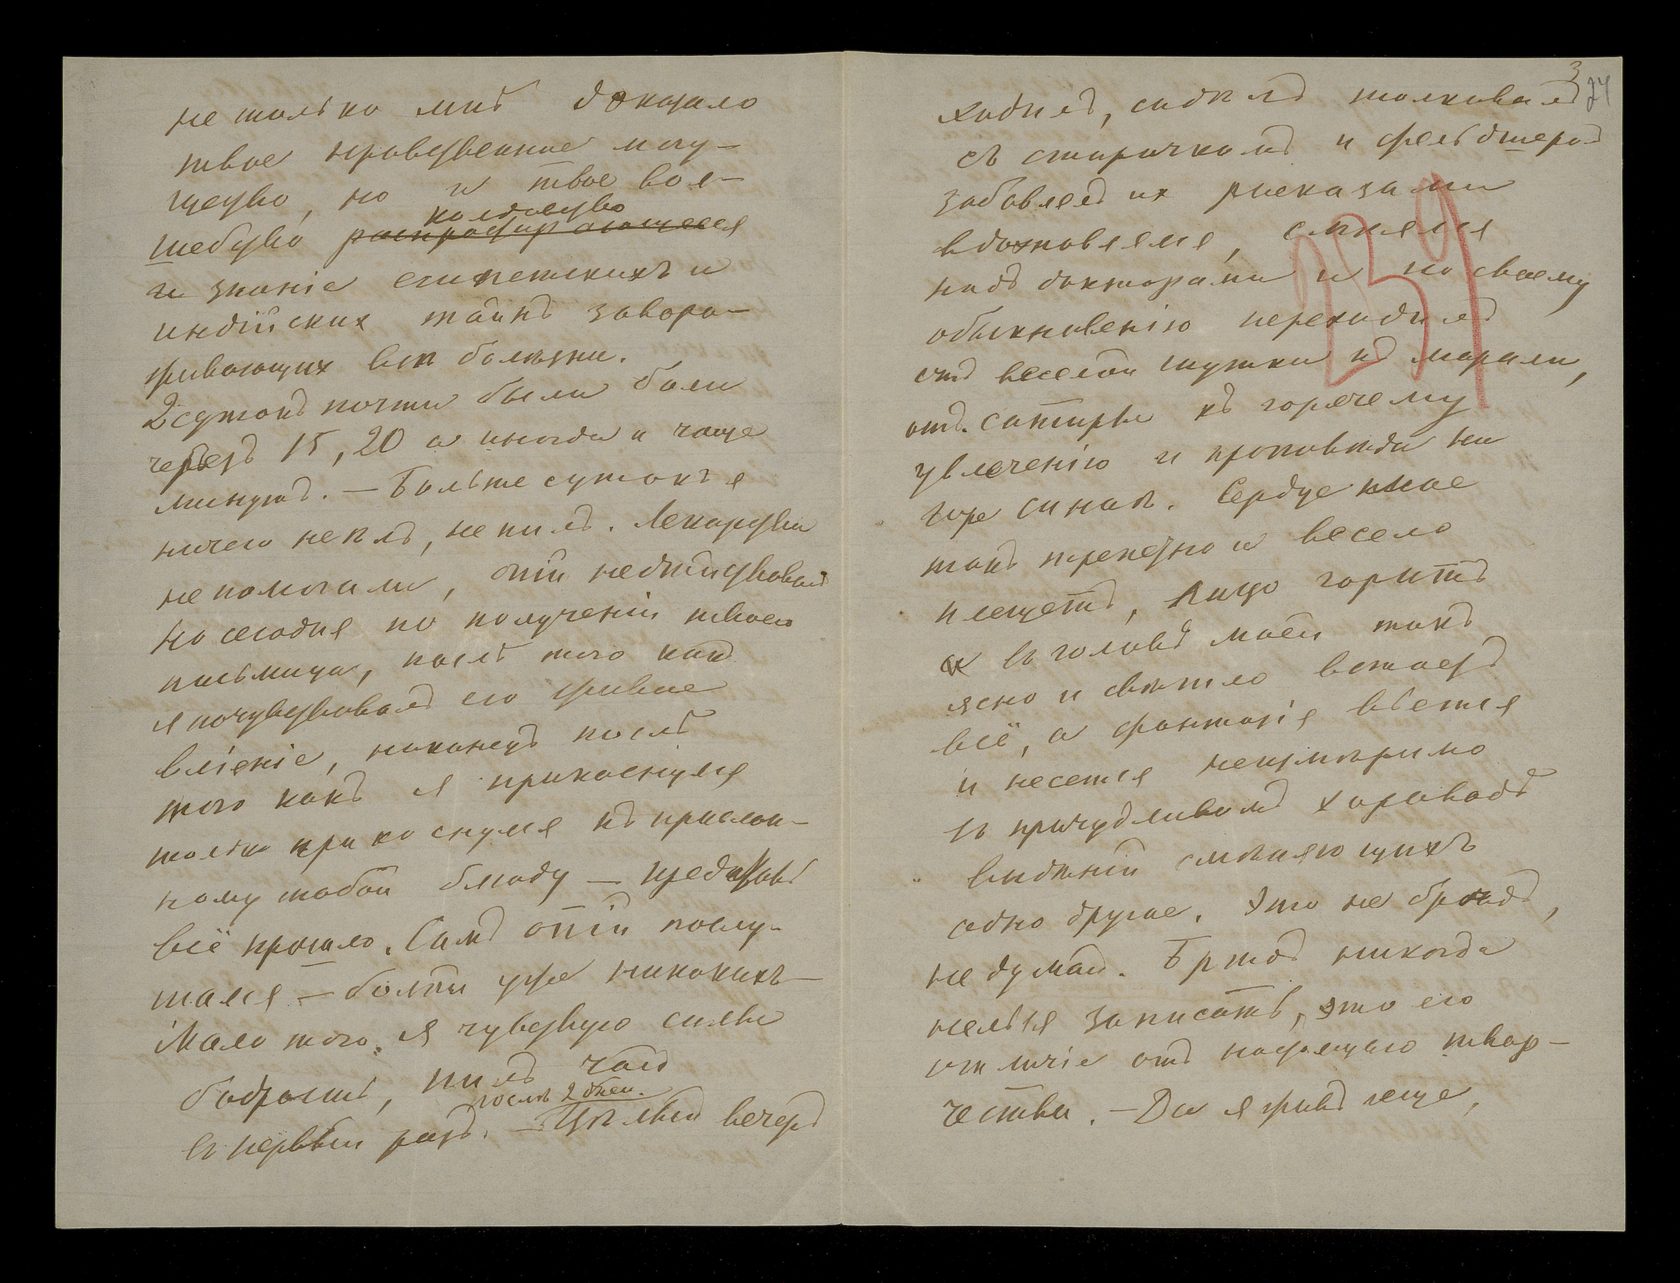 не только мнѣ доказало
твое нравственное могу-
щество, но и твое вол-
шебство распространяющееся
колдовство
и знаніе египетскихъ и
индійскихъ тайнъ завора-
живающихъ всѣ болѣзни.
2 сутокъ почти были боли
черезъ 15, 20 а иногда и чаще
минутъ. — Больше сутокъ я
ничего не ѣлъ, не пилъ. Лекарства
не помогали, опій не дѣйствовалъ
Но сегодня по полученіи твоего
письмица, послѣ того какъ
я почувствовалъ его живое
вліяніе, наконецъ послѣ
того какъ я прикоснулся
только прикоснулся къ прислан-
ному тобой блюду —
всё прошло. Самъ опій послу-
шался — болѣй уже никакихъ —
Мало того, я чувствую силы
бодрость, пилъ чай
послѣ 2 дней.
въ первый разъ. — Цѣлый вечеръ
3
24
ходилъ, сидѣлъ толковалъ
съ старичкомъ и фельдшеро-
забавлялъ их расказами
вдохновлялся, смѣялся
надъ докторами и по своему
239
обыкновенію переходилъ
отъ веселой шутки къ морали,
отъ сатиры къ горячему
увлеченію и проповѣди на
горѣ Синаѣ. Сердце мое
такъ трепетно и весело
плещетъ, лицо горитъ
и въ головѣ моей такъ
ясно и свѣтло встаетъ
всё, а фантазія вьется
и несется неизмѣримо
въ причудливомъ хороводѣ
видѣній смѣняющихъ
одно другое. Это не бредъ,
не думай. Бредъ никогда
нельзя записать, это его
отличіе отъ настоящаго твор-
чества. — Да я живъ еще,